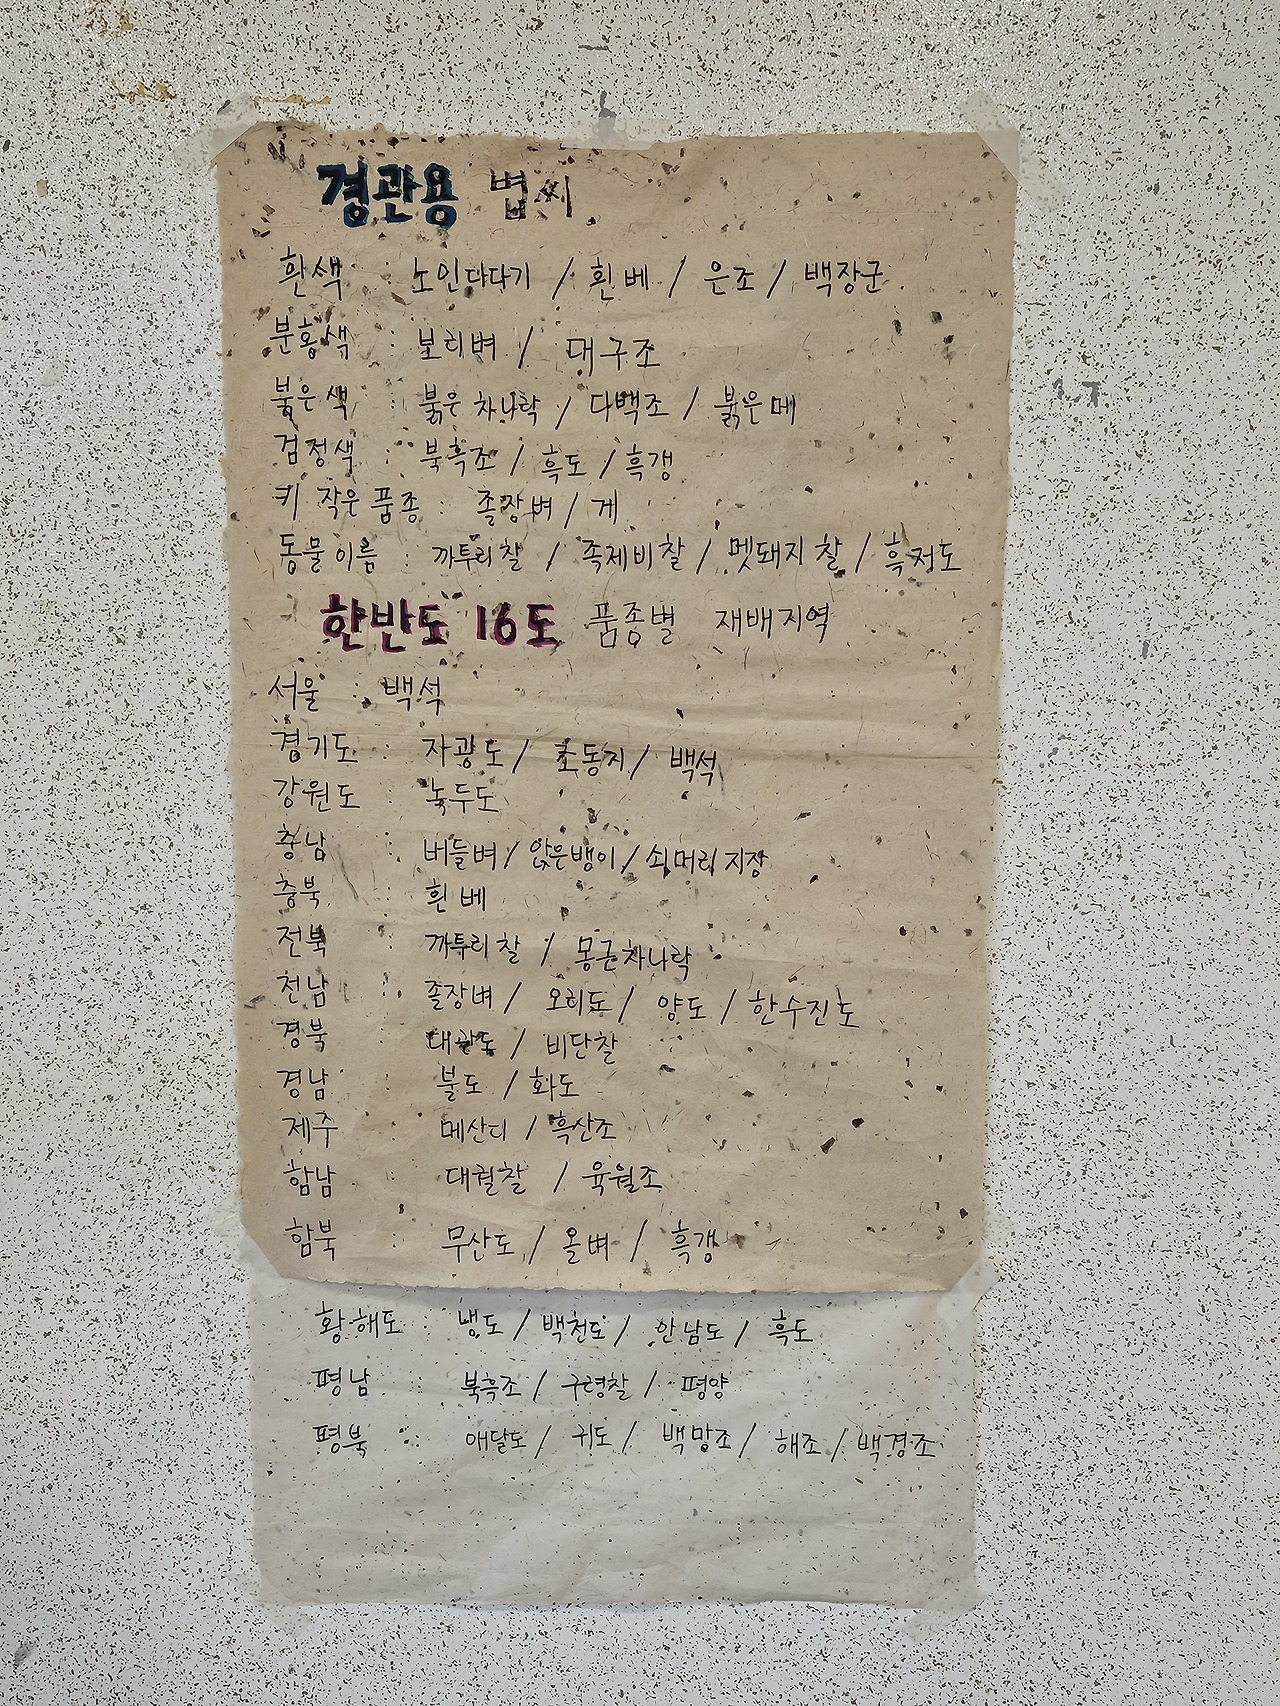 경관용 볍씨
흰색 : 노인다다기 / 흰베 / 은조 / 백장군
분홍색 : 보리벼 / 대구조
붉은색 : 붉은차나락 / 다백조 / 붉은메
검정색 : 북흑조 / 흑도 / 흑갱
키 작은 품종 : 졸장벼 / 게
동물이름 : 까투리찰 / 족제비찰 / 멧돼지찰 / 흑저도
한반도 16도 품종별 재배지역
서울 : 백석
경기도 : 자광도 / 조동지 / 백석
강원도 : 녹두도
충남 : 버들벼 / 앉은뱅이 / 쇠머리지장
충북 : 흰베
전북 : 까투리찰 / 몽근차나락
전남 : 졸장벼 / 오리도 / 양도 / 한수진도
경북 : 대관도 / 비단찰
경남 : 불도 / 화도
제주 : 메산디 / 흑산조
함남 : 대궐찰 / 육월조
함북 : 무산도 / 올벼 / 흑갱
황해도 : 냉도 / 백천도 / 안남도 / 흑도
평남 : 북흑조 / 구령찰 / 평양
평북 : 애달도 / 귀도 / 백망조 / 해조 / 백경조